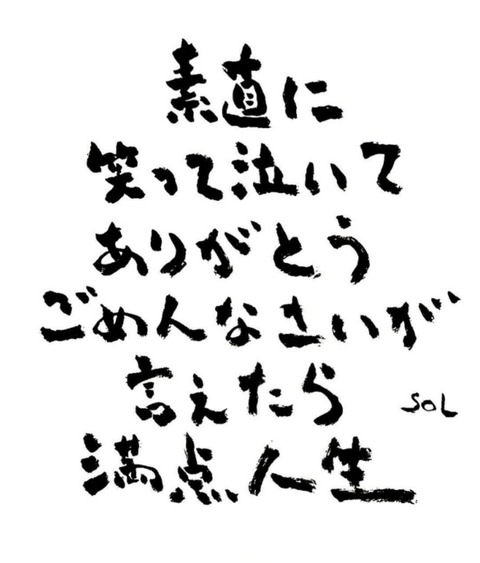 素直に
笑って泣いて
ありがとう
ごめんなさいが
言えたら
SOL
満点人生